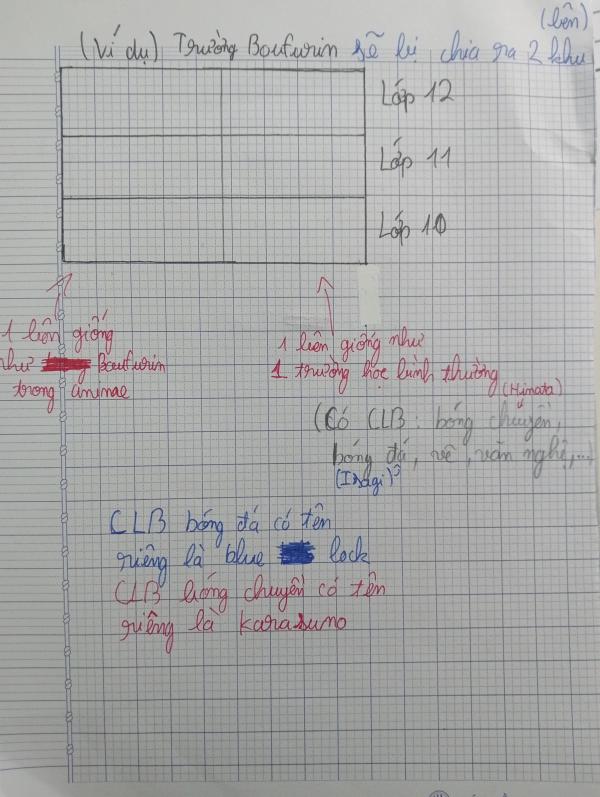 (bên)
(Ví dụ) Trường Boufurin sẽ bị chia ra 2 khu
Lớp 12
Lớp 11
Lớp 10
1 bên giống
như Boufurin
trong animae
1 bên giống như
1 trường học bình thường
(Hinata)
(Có CLB: bóng chuyền,
bóng đá, vẽ, văn nghệ,...)
(Isagi)
CLB bóng đá có tên
riêng là blue lock
CLB bóng chuyền có tên
riêng là karasuno